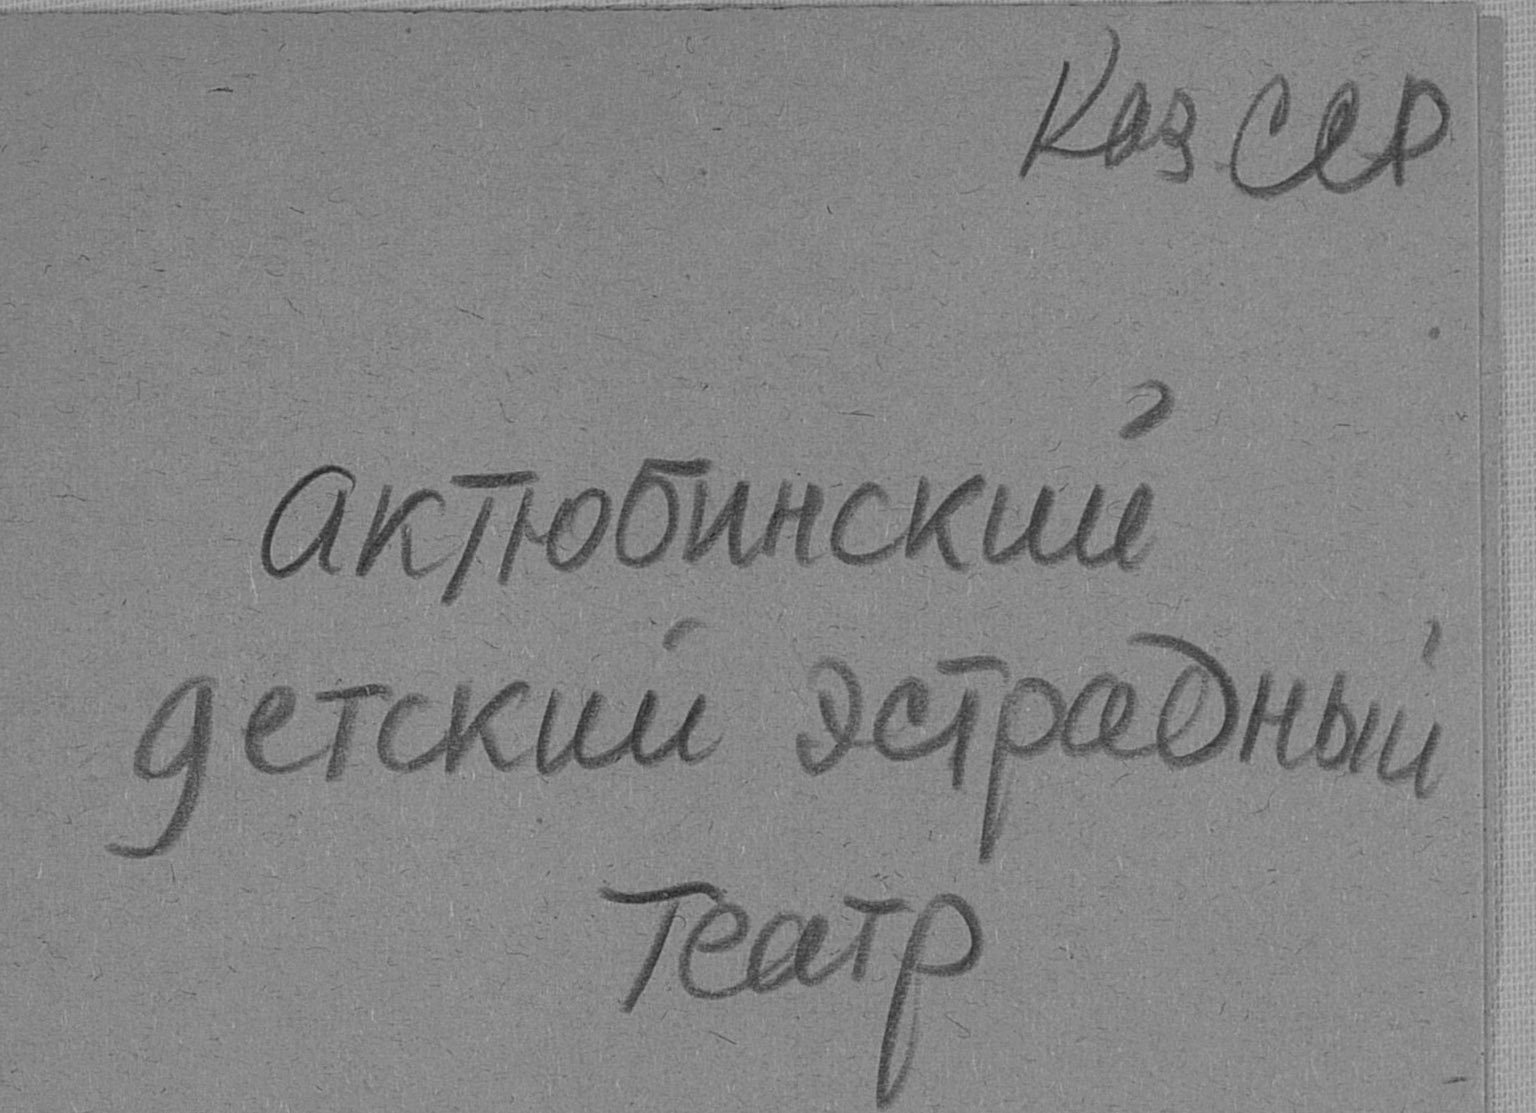 Каз ССР
Актюбинский
детский эстрадный
театр